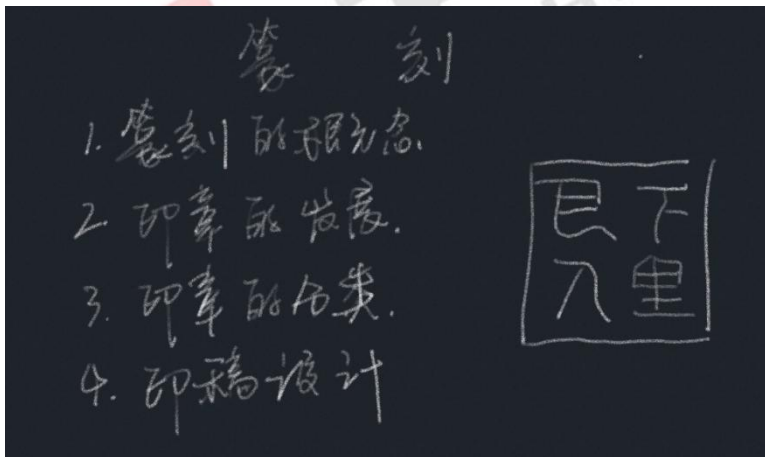 篆 刻
1. 篆刻的概念.
2. 印章的发展.
3. 印章的分类.
4. 印稿设计
下里
巴人